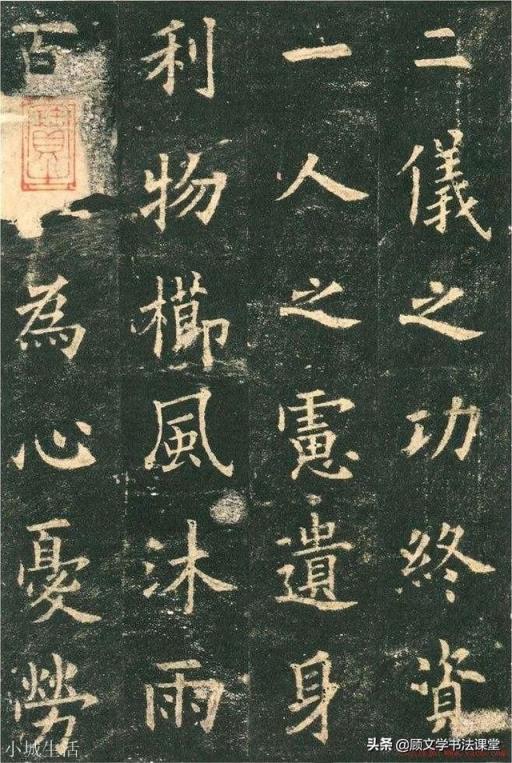 二儀之功終資
一人之慮遺身
利物櫛風沐雨
百為心憂勞
小城生活
头条 @顾文学书法课堂